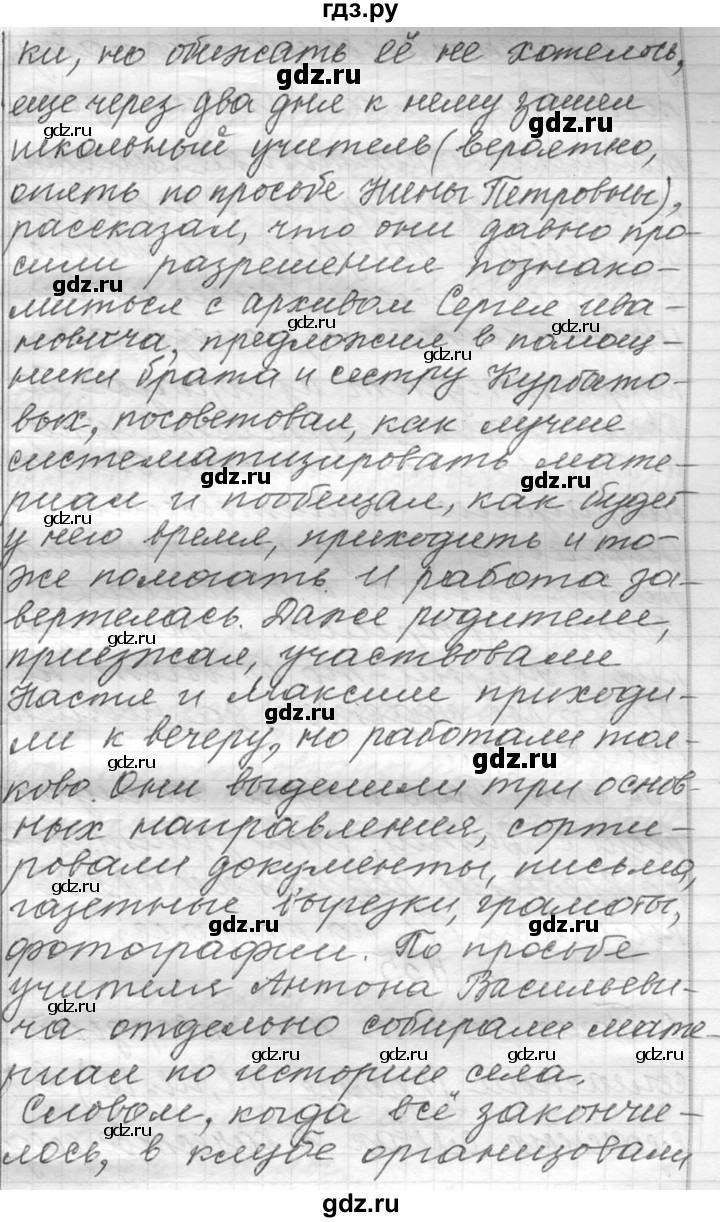 гдз.ру
ки, но обижать её не хотелось,
еще через два дня к нему зашел
школьный учитель (вероятно,
опять по прособе Нины Петровны),
рассказал, что они давно про-
сили разрешения познако-
миться с архивом Сергея Ива-
новича, предложил в помощ-
ники брата и сестру Курбато-
вых, посоветовал, как лучше
систематизировать мате-
риал и пообещал, как будет
у него время, приходить и то-
же помогать. И работа за-
вертелась. Даже родители,
приезжая, участвовали
Настя и Максим приходи-
ли к вечеру, но работали тол-
ково. Они выделили три основ-
ных направления, сорти-
ровали документы, письма,
газетные вырезки, грамоты,
фотографии. По просьбе
учителя Антона Васильеви-
ча отдельно собирали мате-
риал по истории села.
Словом, когда всё закончи-
лось, в клубе организовали
gdz.ru